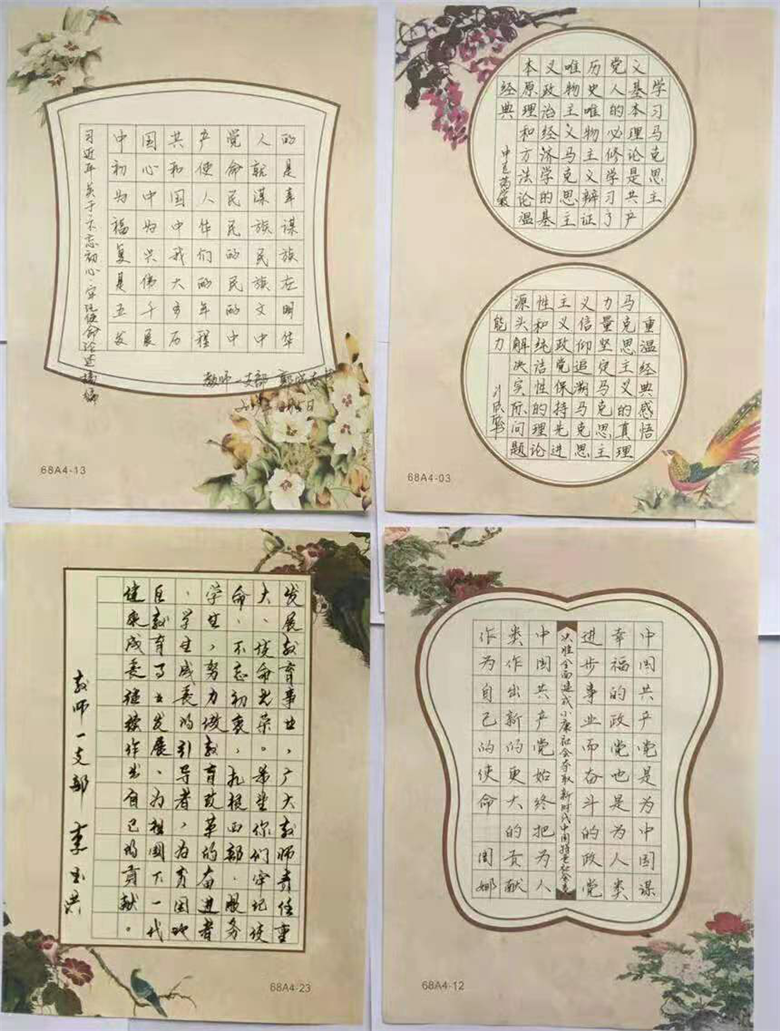 中国共产党人的
初心和使命就是
为中国人民谋幸
福为中华民族谋
复兴我们的民族
是伟大的民族在
五千多年的文明
发展历程中中华
习近平关于不忘初心牢记使命论述摘编
教师一支部
68A4-13
学习马克思主
义基本理论是共产
党人的必修学习了
历史唯物主义辨证
唯物主义马克思主
义政治经济学的基
本原理和方法论温
经典
重温经典感悟
马克思主义的真理
力量坚定马克思主
义信仰追溯马克思
主义政党保持先进
性和纯洁性的理论
源头解决实际问题
能力
68A4-03
发展教育事业，广大教师责任重
大、使命光荣。希望你们牢记使
命、不忘初衷，扎根西部、服务
学生，努力做教育改革的奋进者
、学生成长的引导者，为贫困地
区教育事业发展、为祖国下一代
健康成长继续作出自己的贡献。
教师一支部
68A4-23
中国共产党是为中国谋
幸福的政党也是为人类
进步事业而奋斗的政党
决胜全面建成小康社会夺取新时代中国特色社会主
中国共产党始终把为人
类作出新的更大的贡献
作为自己的使命 周娜
68A4-12